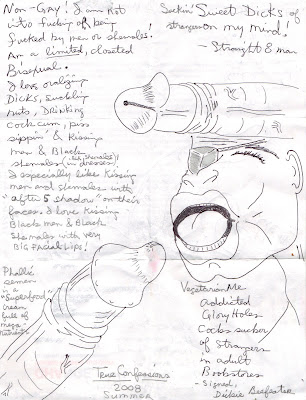 Non-Gay! I am not
into fucking or being
fucked by men or shemales.
Am a limited, closeted
Bisexual.
I love oralizing
Dicks, smelling
nuts, DRINKING
cock cum, piss
sippin' & Kissing
men & Black
shemales (in dresses)
I especially like Kissing
men and shemales with
"after 5 shadow" on their
faces. I love Kissing
Black men & Black
Shemales with very
BIG FACIAL Lips!
Phallic
semen
is a
"Superfood"
cream
full of
mega
nutrients
Suckin' Sweet Dicks of
strangers on my mind.
- Straight 8 man
Vegetarian Me
addicted
Glory Holes
Cocks sucker
of strangers
in adult
Bookstores
- Signed,
Dickie Beefeater
True Confessions
2008
Summer